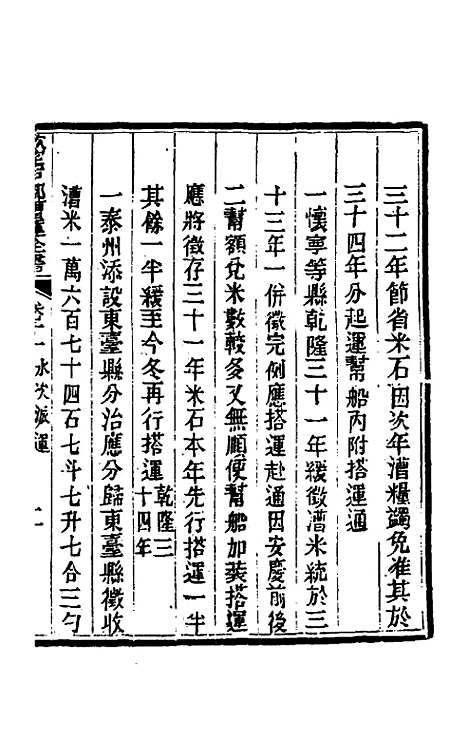 三十二年節省米石因次年漕糧蠲免准其於
三十四年分起運幫船內附搭運通
一懷寧等縣乾隆三十一年緩徵漕米統於三
十三年一併徵完例應搭運赴通因安慶前後
二幫額兌米數較多又無順便幫船加裝搭運
應將徵存三十一年米石本年先行搭運一半
其餘一半緩至今冬再行搭運乾隆三十四年
一泰州添設東臺縣分治應分歸東臺縣徵收
漕米一萬六百七十四石七斗七升七合三勺
戶部漕運全書 卷十一 水次派運